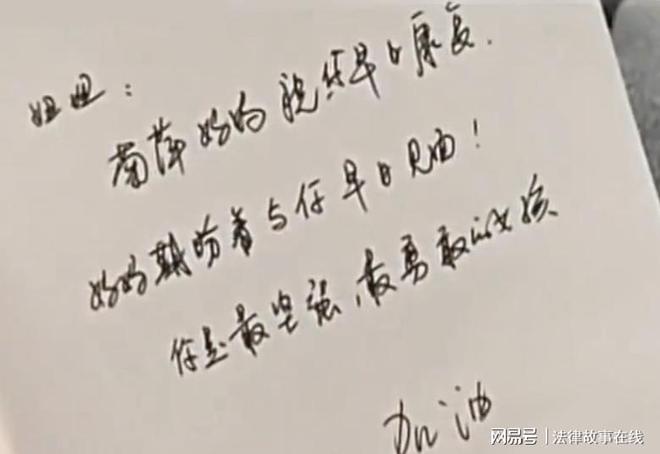 妞妞：
菊萍妈妈祝你早日康复.
妈妈期盼着与你早日见面！
你是最坚强，最勇敢的女孩
加油
网易号 | 法律故事在线